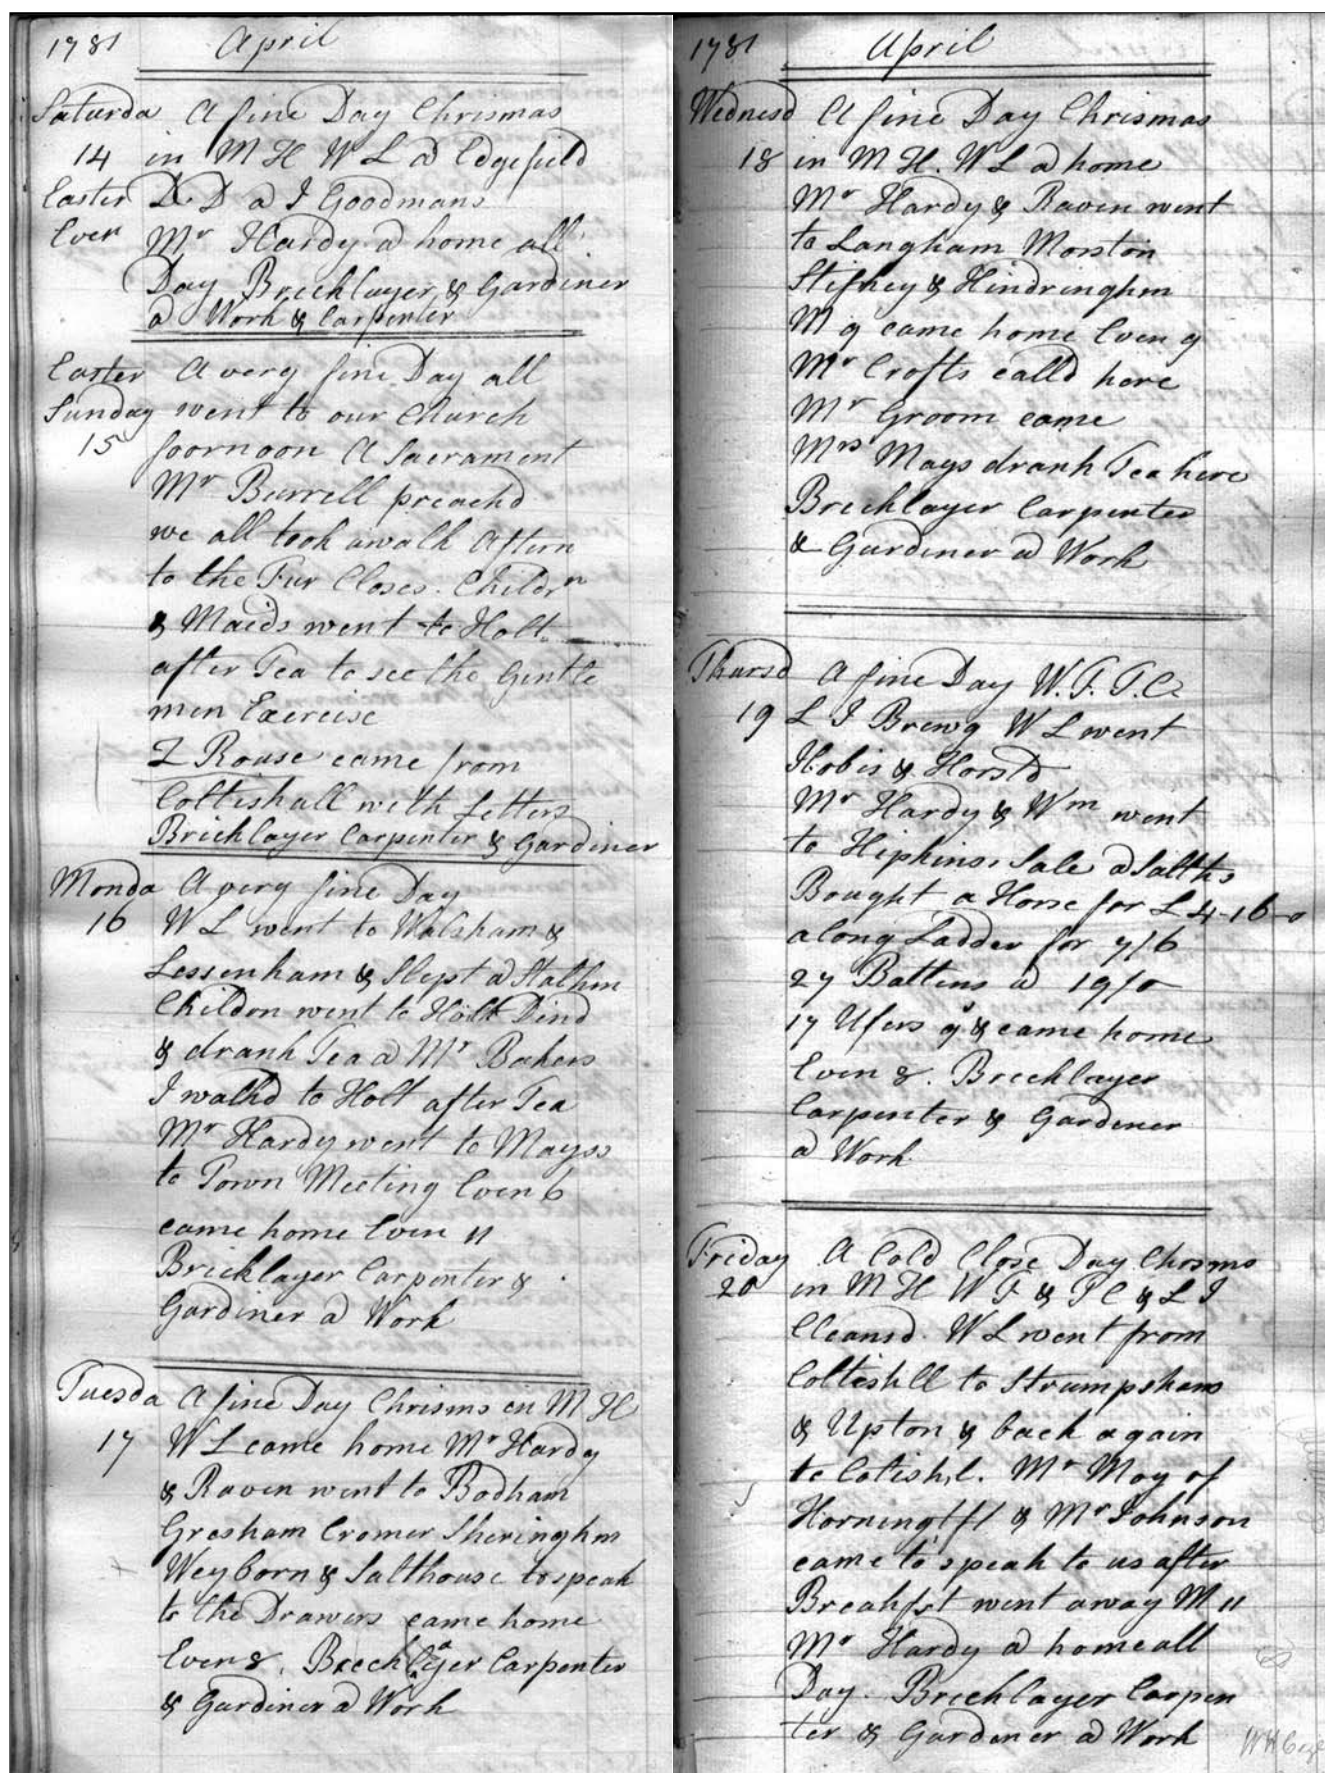 1781 April
Saturda A fine Day Chrismas
14 in M H W L a Edgefield
Easter D. D a I Goodmans
Even Mr Hardy a home all
Day Bricklayer & Gardiner
a Work & Carpenter
Easter A very fine Day all
Sunday went to our Church
15 foornoon A Sacrament
Mr Burrell preachd
we all took a walk Aftern
to the Fur Closes. Childrn
& Maids went to Holt
after Tea to see the Gentle
men Exercise
Z Rouse came from
Coltishall with Letters
Bricklayer Carpenter & Gardiner
Monda A very fine Day
16 W L went to Walsham &
Lessenham & Slept a Stalhm
Childon went to Holt Dind
& drank Tea a Mr Bakers
I walkd to Holt after Tea
Mr Hardy went to Mayss
to Town Meeting Even 6
came home Even 11
Bricklayer Carpenter &
Gardiner a Work
Tuesda A fine Day Chrisms in M H
17 W L came home Mr Hardy
& Raven went to Bodham
Gresham Cromer Sheringhm
Weyborn & Salthouse to speak
to the Drawers came home
Even 8. Bricklayer Carpenter
& Gardiner a Work
1781 April
Wednesd A fine Day Chrismas
18 in M H. W L a home
Mr Hardy & Raven went
to Langham Morston
Stifkey & Hindringhm
M 9 came home Even 9
Mr Crofts calld here
Mr Groom came
Mrs Mays drank Tea here
Bricklayer Carpenter
& Gardiner a Work
Thursd A fine Day W. F. T. C.
19 L I Brewg W L went
Hobis & Horstd
Mr Hardy & Wm went
to Hipkins, Sale a Salths
Bought a Horse for L 4-16-0
a long Ladder for 7/6
27 Battins a 19/0
17 Ufers 9s & came home
Even 8. Bricklayer
Carpenter & Gardiner
a Work
Friday A Cold Close Day Chrsms
20 in M H W F & T C & L I
Cleansd. W L went from
Coltishll to Strumpsham
& Upton & back again
to Cotish,l. Mr May of
Horning & Mr Johnson
came to speak to us after
Breakfst went away M 11
Mr Hardy a home all
Day. Bricklayer Carpen
ter & Gardener a Work